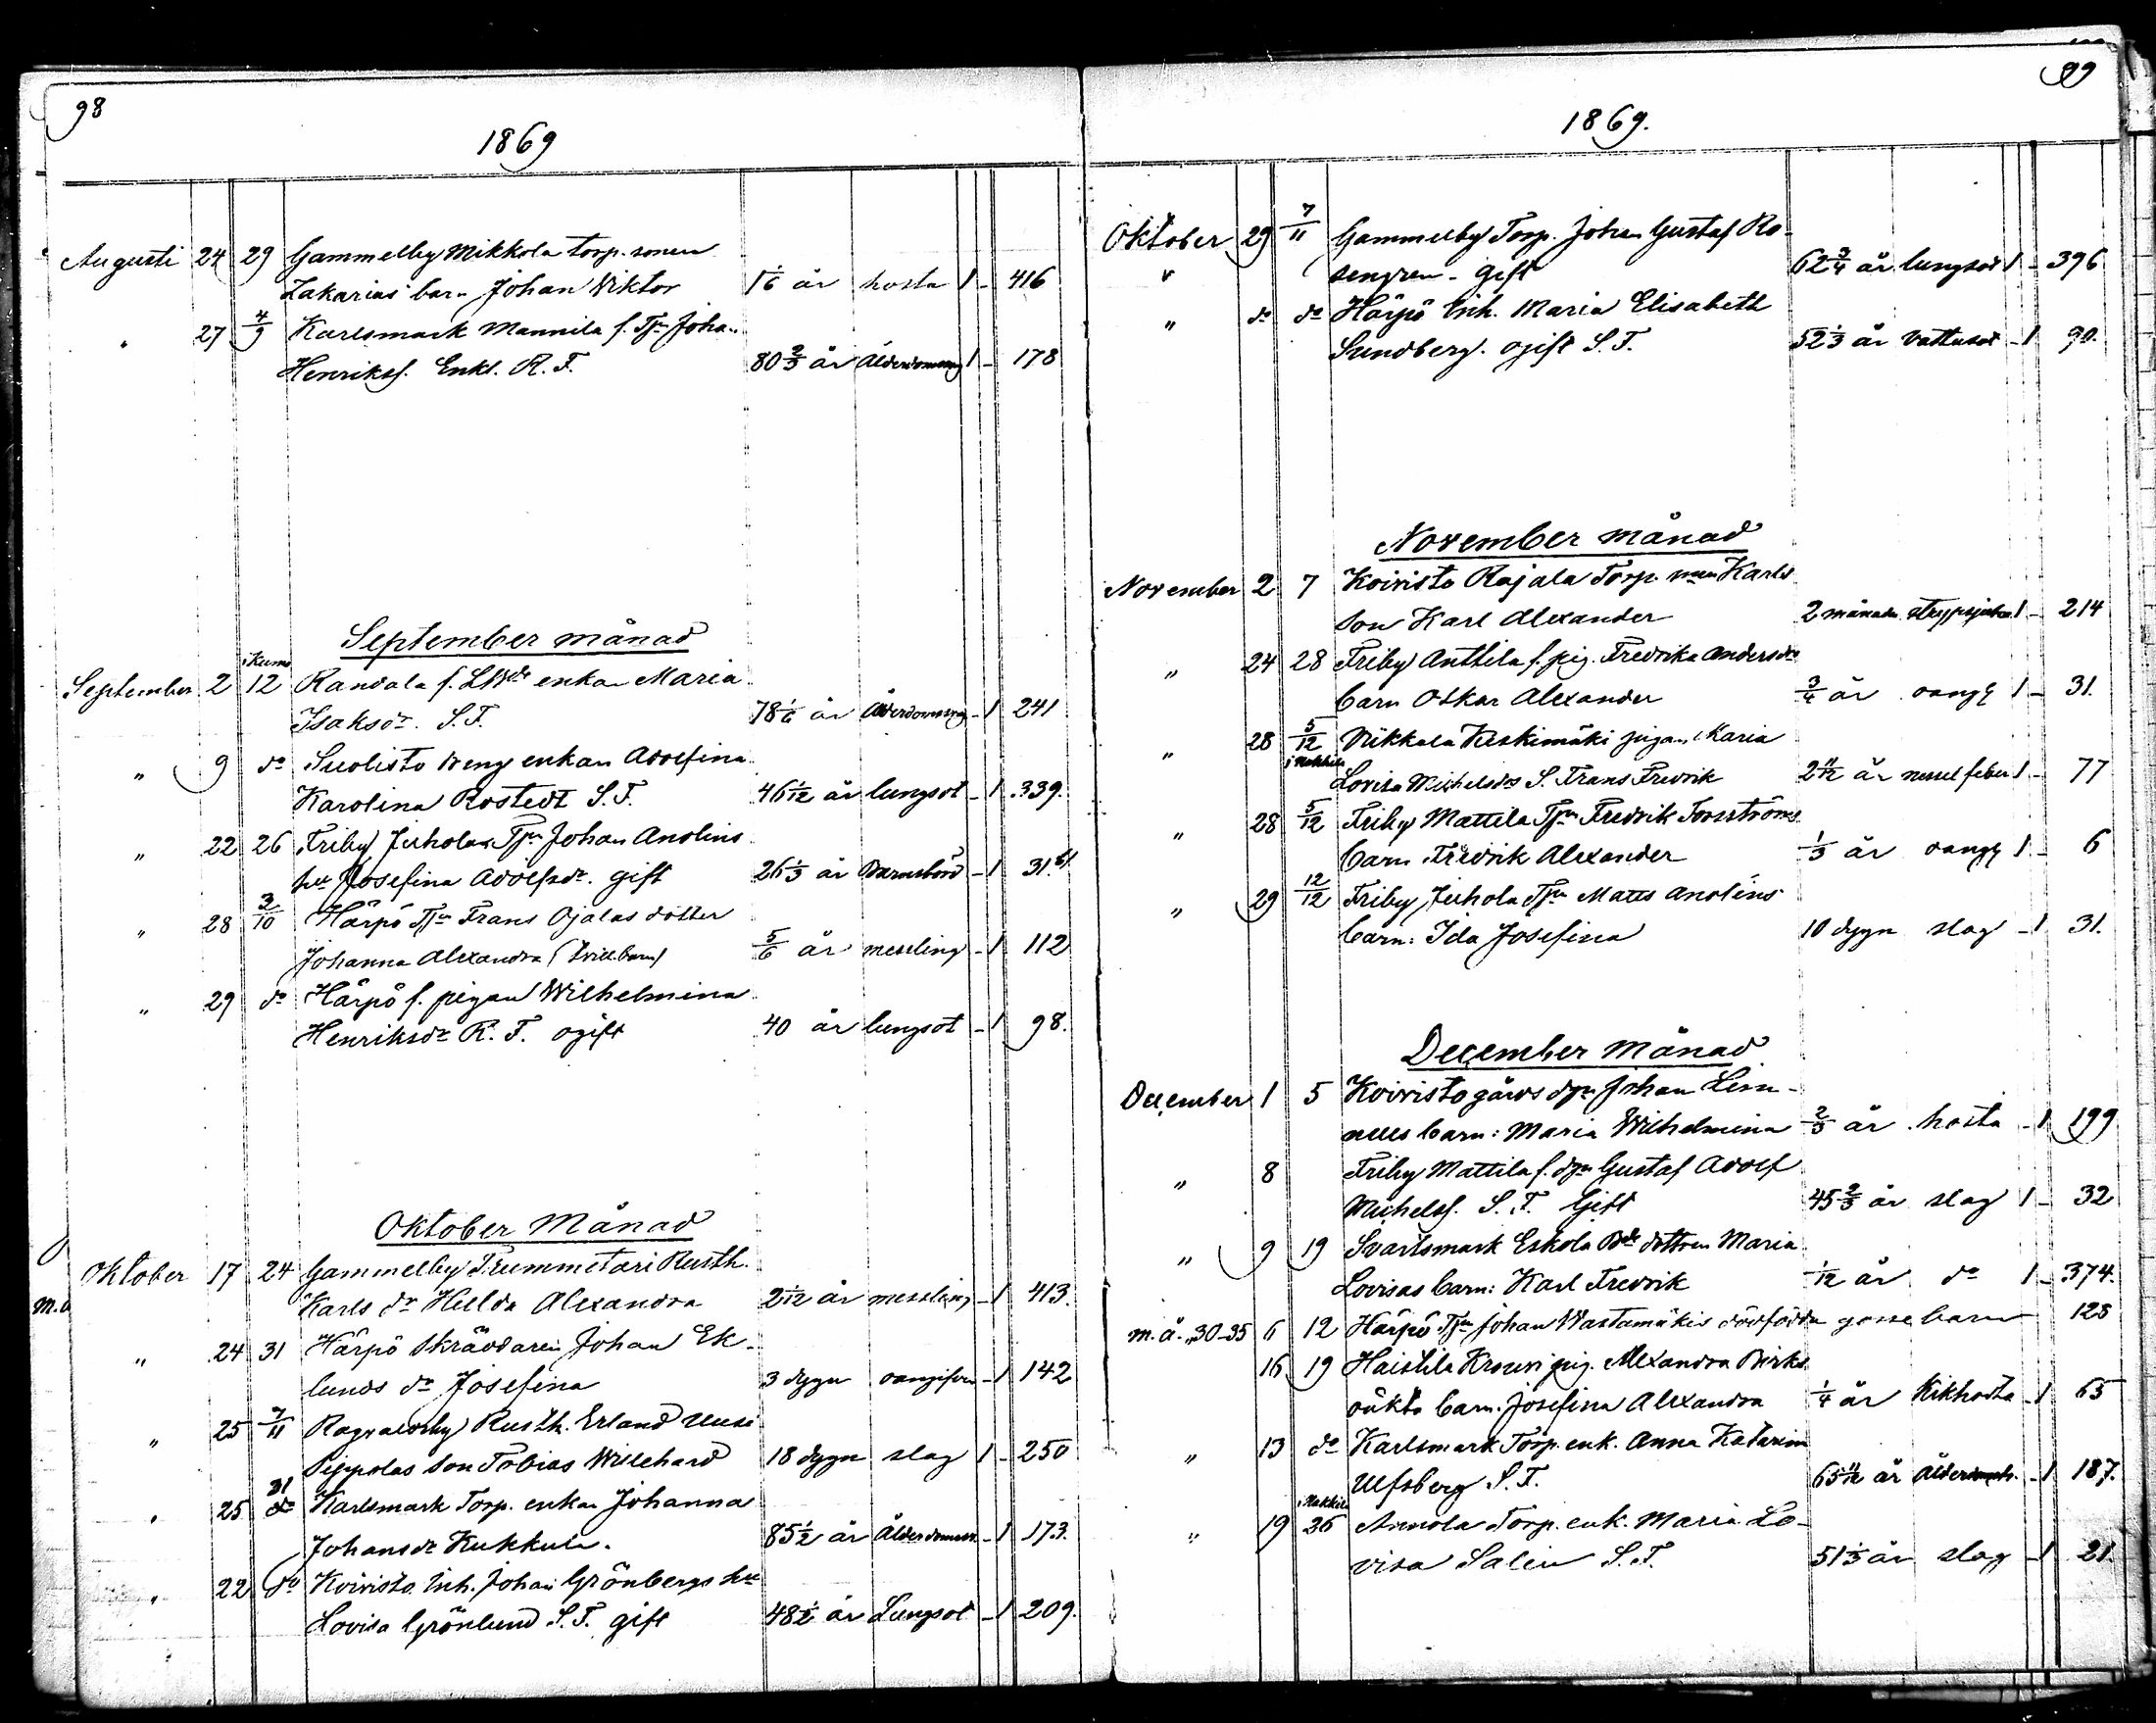 98
1869
Augusti 24 29 Gammelby Mikkola torp. sonen
Zakarias barn Johan Wiktor 1 1/6 år hosta 1 - 416
" 27 4/9 Karlsmark Mannila f. Tjn Johan
Henrikss. Enkl. R. F. 80 2/3 år Ålderdomssvag 1 - 178
September månad
i Kumo
September 2 12 Randala f. enkan Maria
Isaksdr. S. F. 78 1/6 år Ålderdomssvag - 1 241
" 9 do Suolisto dreng enkan Adolfina
Karolina Rostedt S. F. 46 1/12 år lungsot - 1 339.
" 22 26 Friby Juhola Tjn Johan Anolins
hu Josefina Adolfsdr. gift 26 1/3 år Barnsbörd - 1 31.
" 28 3/10 Härpö Tjn Frans Ojalas dotter
Johanna Alexandra (tvill.barn) 5/6 år messling - 1 112
" 29 do Härpö f. pigan Wilhelmina
Henriksdr R. F. ogift 40 år lungsot - 1 98.
Oktober Månad
Oktober 17 24 Gammelby Trummetari Rusth.
Karls dr Hulda Alexandra 2 1/12 år messling - 1 413.
" 24 31 Härpö Skräddaren Johan Ek-
lunds dr Josefina 3 dygn oangifven - 1 142
" 25 7/11 Ragvaldsby Rusth. Erland Uusi
Seppolas son Tobias Willehard 18 dygn slag 1 - 250
" 25 31 do Karlsmark Torp. enkan Johanna
Johansdr Kukkula. 85 1/2 år Ålderdomssv. - 1 173.
" 22 do Koivisto Inh. Johan Grönbergs hu
Lovisa Grönlund S. F. gift 48 1/2 år Lungsot - 1 209.
99
1869.
Oktober 29 7/11 Gammelby Torp. Johan Gustaf Ro-
" sengren - gift 62 3/4 år lungsot 1 - 396
" do do Härpö Inh. Maria Elisabeth
Sundberg. ogift S. F. 52 1/3 år Vattusot - 1 90.
November månad
November 2 7 Koivisto Rajala Torp. Karls
son Karl Alexander 2 månader strypsjukan 1 - 214
" 24 28 Friby Anttila f. pig. Fredrika Andersdr
barn Oskar Alexander 3/4 år oangf 1 - 31.
" 28 5/12 Nikkala Keskimäki pigan Maria
i Nakkila Lovisa Michelsdrs S. Frans Fredrik 2 11/12 år nesselfeber 1 - 77
" 28 5/12 Friby Mattila Tjn Fredrik Forsströms
barn Fredrik Alexander 1/3 år oangf 1 - 6
" 29 12/12 Friby Juhola Tjn Matts Anolins
barn: Ida Josefina 10 dygn slag - 1 31.
December Månad
December 1 5 Koivisto gårds dgn Johan Lin-
barn: Maria Wilhelmina 2/3 år hosta - 1 199
" 8 Friby Mattila f. dgn Gustaf Adolf
Michelss. S. F. Gift 45 2/3 år slag 1 - 32
" 9 19 Svartsmark Eskola Bde dottren Maria
Lovisas barn: Karl Fredrik 1/12 år do 1 - 374.
m. å. 30-35 6 12 Härpö Tjn Johan Wastamäkis dödfödda gossebarn 128
16 19 Haistila Krouvi pig. Alexandra
oäkta barn. Josefina Alexandra 1/4 år Kikhosta - 1 65
" 13 do Karlsmark Torp. enk. Anna Katarina
Ulfsberg S. F. 65 11/12 år Ålderdomssv. - 1 187.
i Nakkila
" 19 26 Annola Torp. enk. Maria Lo-
visa Salin S. F. 51 1/3 år slag - 1 21.